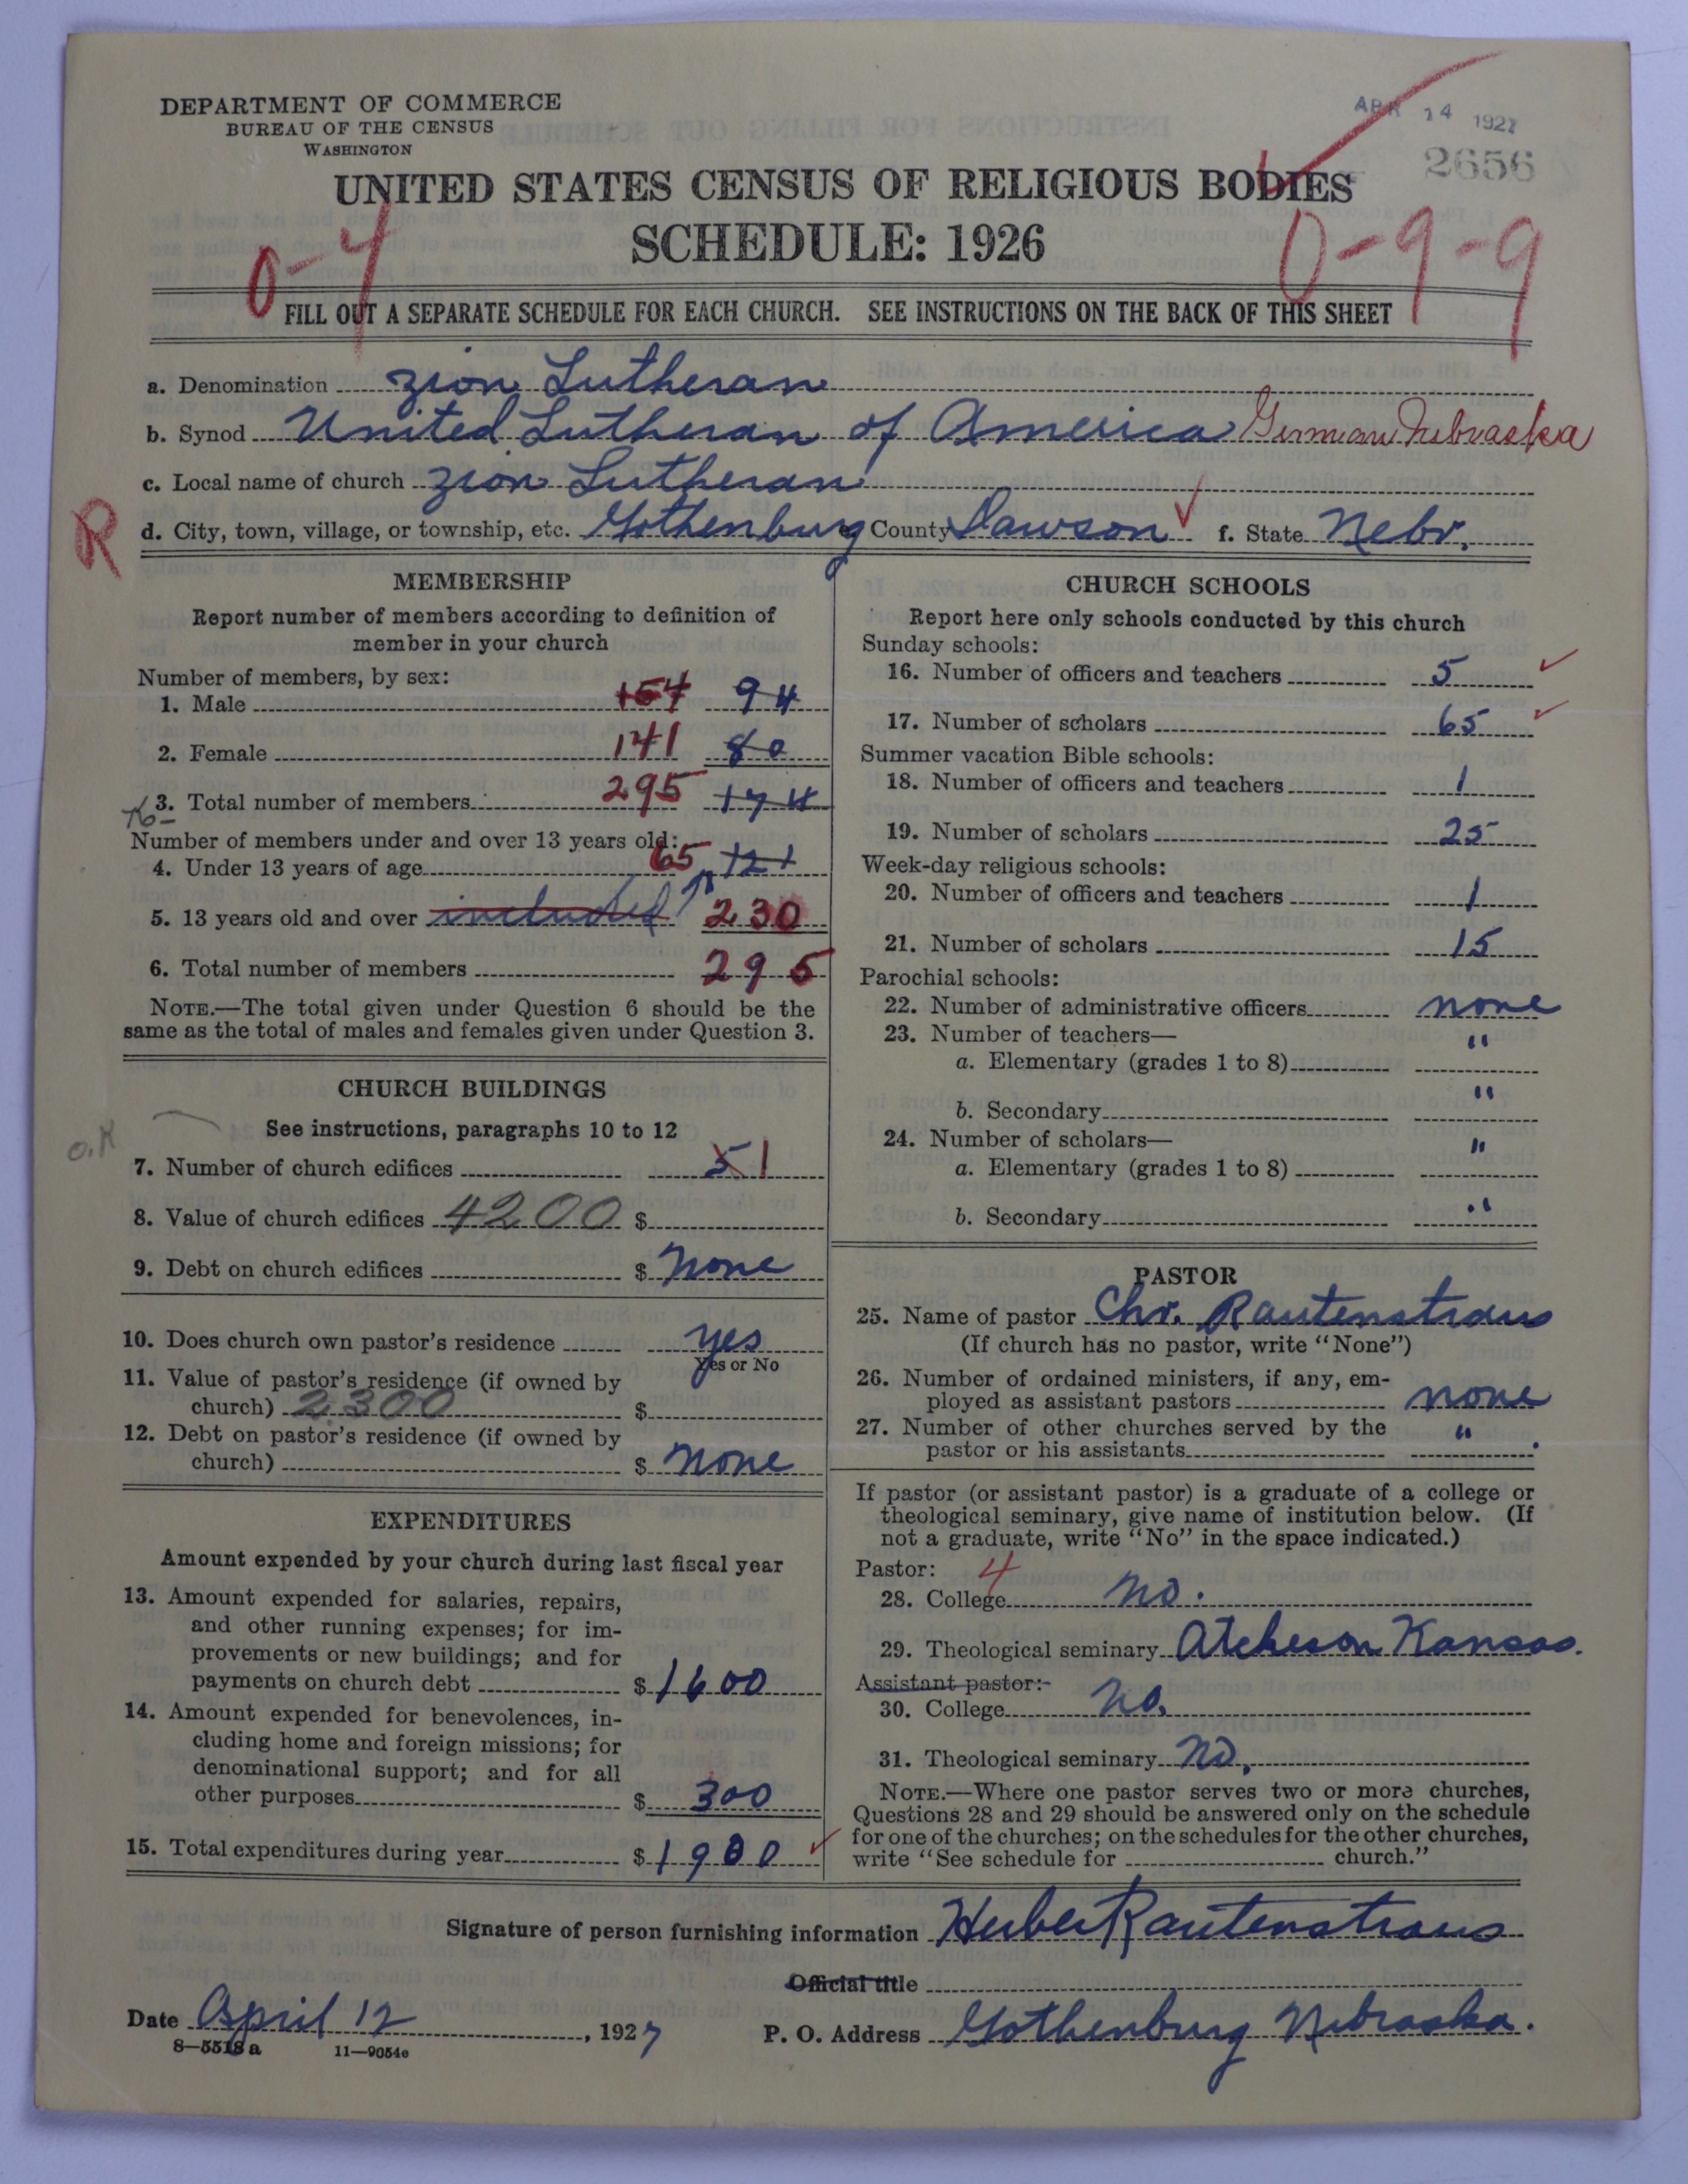 DEPARTMENT OF COMMERCE
BUREAU OF THE CENSUS
WASHINGTON
APR 14 1927
2656
UNITED STATES CENSUS OF RELIGIOUS BODIES
SCHEDULE: 1926
0-4
0-9-9
FILL OUT A SEPARATE SCHEDULE FOR EACH CHURCH. SEE INSTRUCTIONS ON THE BACK OF THIS SHEET
a. Denomination Zion Lutheran
b. Synod United Lutheran of America German Nebraska
c. Local name of church Zion Lutheran
R
d. City, town, village, or township, etc. Gothenburg e. County Dawson f. State Nebr.
MEMBERSHIP
Report number of members according to definition of
member in your church
Number of members, by sex:
1. Male 154 94
2. Female 141 80
3. Total number of members 295 174
Number of members under and over 13 years old:
4. Under 13 years of age 65 121
5. 13 years old and over included 230
6. Total number of members 295
NOTE.—The total given under Question 6 should be the
same as the total of males and females given under Question 3.
CHURCH BUILDINGS
See instructions, paragraphs 10 to 12
O.K
7. Number of church edifices 5 1
8. Value of church edifices 4200 $
9. Debt on church edifices $ none
10. Does church own pastor's residence yes
Yes or No
11. Value of pastor's residence (if owned by
church) 2300 $
12. Debt on pastor's residence (if owned by
church) $ none
EXPENDITURES
Amount expended by your church during last fiscal year
13. Amount expended for salaries, repairs,
and other running expenses; for im-
provements or new buildings; and for
payments on church debt $ 1600
14. Amount expended for benevolences, in-
cluding home and foreign missions; for
denominational support; and for all
other purposes $ 300
15. Total expenditures during year $ 1900
CHURCH SCHOOLS
Report here only schools conducted by this church
Sunday schools:
16. Number of officers and teachers 5
17. Number of scholars 65
Summer vacation Bible schools:
18. Number of officers and teachers 1
19. Number of scholars 25
Week-day religious schools:
20. Number of officers and teachers 1
21. Number of scholars 15
Parochial schools:
22. Number of administrative officers none
23. Number of teachers—
a. Elementary (grades 1 to 8) "
b. Secondary "
24. Number of scholars—
a. Elementary (grades 1 to 8) "
b. Secondary "
PASTOR
25. Name of pastor Chr. Rautenstraus
(If church has no pastor, write "None")
26. Number of ordained ministers, if any, em-
ployed as assistant pastors none
27. Number of other churches served by the
pastor or his assistants "
If pastor (or assistant pastor) is a graduate of a college or
theological seminary, give name of institution below. (If
not a graduate, write "No" in the space indicated.)
Pastor: 4
28. College no.
29. Theological seminary Atcheson Kansas.
Assistant pastor:
30. College no.
31. Theological seminary no.
NOTE.—Where one pastor serves two or more churches,
Questions 28 and 29 should be answered only on the schedule
for one of the churches; on the schedules for the other churches,
write "See schedule for church."
Signature of person furnishing information Herbert Rautenstraus
Official title
Date April 12, 1927 P. O. Address Gothenburg Nebraska.
8-5518a 11-9054e